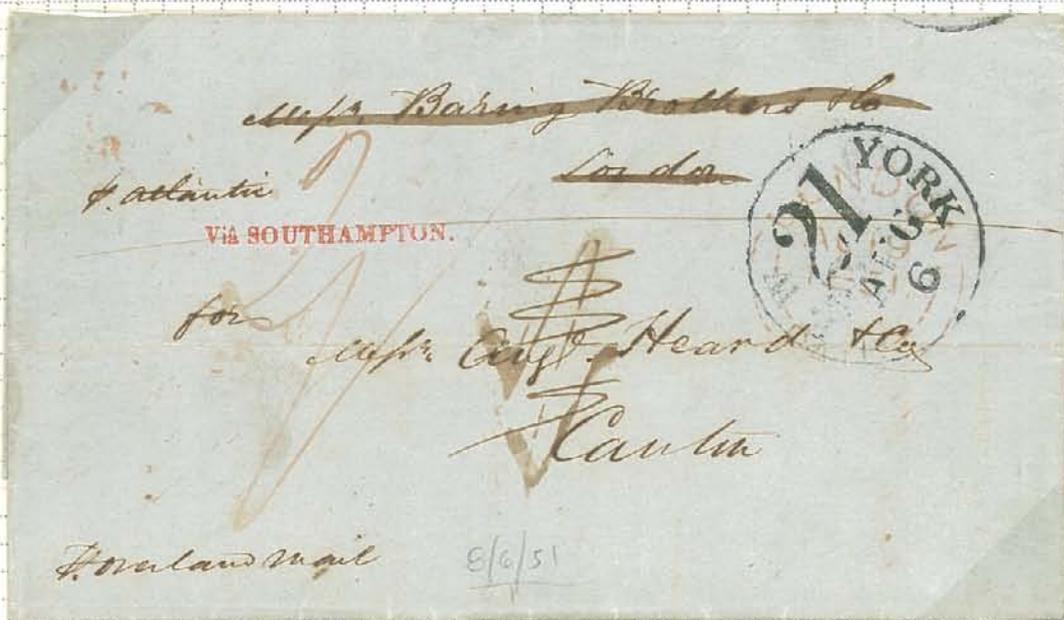 Messrs Baring Brothers & Co
London
p. Atlantic
Via SOUTHAMPTON.
21
YORK
AUG
6
LONDON
for
Messrs Augt. Heard & Co
Canton
p. overland mail
8/6/51